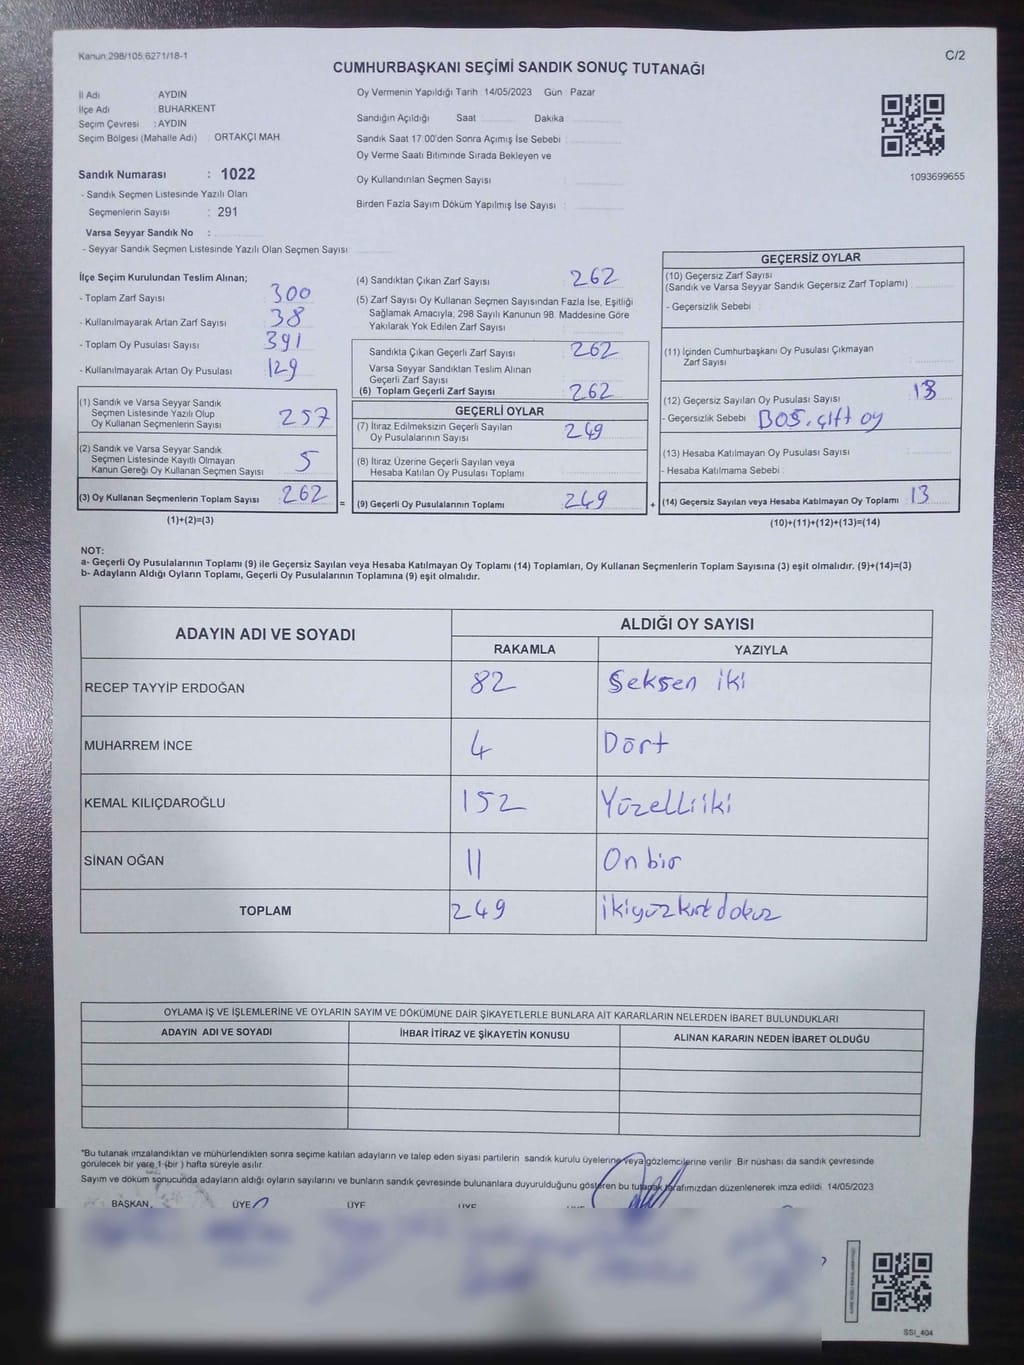 Kanun 298/105 6271/18-1
C/2
CUMHURBAŞKANI SEÇİMİ SANDIK SONUÇ TUTANAĞI
İl Adı AYDIN
İlçe Adı BUHARKENT
Seçim Çevresi : AYDIN
Seçim Bölgesi (Mahalle Adı) : ORTAKÇI MAH
Sandık Numarası : 1022
- Sandık Seçmen Listesinde Yazılı Olan
Seçmenlerin Sayısı : 291
Varsa Seyyar Sandık No :
- Seyyar Sandık Seçmen Listesinde Yazılı Olan Seçmen Sayısı
Oy Vermenin Yapıldığı Tarih 14/05/2023 Gün Pazar
Sandığın Açıldığı Saat Dakika
Sandık Saat 17:00'den Sonra Açımış İse Sebebi :
Oy Verme Saati Bitiminde Sırada Bekleyen ve
Oy Kullandırılan Seçmen Sayısı :
Birden Fazla Sayım Döküm Yapılmış İse Sayısı :
1093699655
İlçe Seçim Kurulundan Teslim Alınan;
- Toplam Zarf Sayısı 300
- Kullanılmayarak Artan Zarf Sayısı 38
- Toplam Oy Pusulası Sayısı 391
- Kullanılmayarak Artan Oy Pusulası 129
(1) Sandık ve Varsa Seyyar Sandık
Seçmen Listesinde Yazılı Olup
Oy Kullanan Seçmenlerin Sayısı 257
(2) Sandık ve Varsa Seyyar Sandık
Seçmen Listesinde Kayıtlı Olmayan
Kanun Gereği Oy Kullanan Seçmen Sayısı 5
(3) Oy Kullanan Seçmenlerin Toplam Sayısı 262 =
(1)+(2)=(3)
(4) Sandıktan Çıkan Zarf Sayısı 262
(5) Zarf Sayısı Oy Kullanan Seçmen Sayısından Fazla İse, Eşitliği
Sağlamak Amacıyla; 298 Sayılı Kanunun 98. Maddesine Göre
Yakılarak Yok Edilen Zarf Sayısı
Sandıkta Çıkan Geçerli Zarf Sayısı 262
Varsa Seyyar Sandıktan Teslim Alınan
Geçerli Zarf Sayısı
(6) Toplam Geçerli Zarf Sayısı 262
GEÇERLİ OYLAR
(7) İtiraz Edilmeksizin Geçerli Sayılan
Oy Pusulalarının Sayısı 249
(8) İtiraz Üzerine Geçerli Sayılan veya
Hesaba Katılan Oy Pusulası Toplamı
(9) Geçerli Oy Pusulalarının Toplamı 249 +
GEÇERSİZ OYLAR
(10) Geçersiz Zarf Sayısı
(Sandık ve Varsa Seyyar Sandık Geçersiz Zarf Toplamı) :
- Geçersizlik Sebebi :
(11) İçinden Cumhurbaşkanı Oy Pusulası Çıkmayan
Zarf Sayısı :
(12) Geçersiz Sayılan Oy Pusulası Sayısı : 13
- Geçersizlik Sebebi : BOŞ, çift oy
(13) Hesaba Katılmayan Oy Pusulası Sayısı :
- Hesaba Katılmama Sebebi :
(14) Geçersiz Sayılan veya Hesaba Katılmayan Oy Toplamı : 13
(10)+(11)+(12)+(13)=(14)
NOT:
a- Geçerli Oy Pusulalarının Toplamı (9) ile Geçersiz Sayılan veya Hesaba Katılmayan Oy Toplamı (14) Toplamları, Oy Kullanan Seçmenlerin Toplam Sayısına (3) eşit olmalıdır. (9)+(14)=(3)
b- Adayların Aldığı Oyların Toplamı, Geçerli Oy Pusulalarının Toplamına (9) eşit olmalıdır.
ADAYIN ADI VE SOYADI ALDIĞI OY SAYISI
RAKAMLA YAZIYLA
RECEP TAYYİP ERDOĞAN 82 Seksen iki
MUHARREM İNCE 4 Dört
KEMAL KILIÇDAROĞLU 152 Yüzelliiki
SİNAN OĞAN 11 On bir
TOPLAM 249 ikiyüzkırkdokuz
OYLAMA İŞ VE İŞLEMLERİNE VE OYLARIN SAYIM VE DÖKÜMÜNE DAİR ŞİKAYETLERLE BUNLARA AİT KARARLARIN NELERDEN İBARET BULUNDUKLARI
ADAYIN ADI VE SOYADI İHBAR İTİRAZ VE ŞİKAYETİN KONUSU ALINAN KARARIN NEDEN İBARET OLDUĞU
*Bu tutanak imzalandıktan ve mühürlendikten sonra seçime katılan adayların ve talep eden siyasi partilerin sandık kurulu üyelerine veya gözlemcilerine verilir Bir nüshası da sandık çevresinde
görülecek bir yere 1 (bir ) hafta süreyle asılır.
Sayım ve döküm sonucunda adayların aldığı oyların sayılarını ve bunların sandık çevresinde bulunanlara duyurulduğunu gösteren bu tutanak tarafımızdan düzenlenerek imza edildi 14/05/2023
BAŞKAN ÜYE ÜYE ÜYE ÜYE
SSI_404